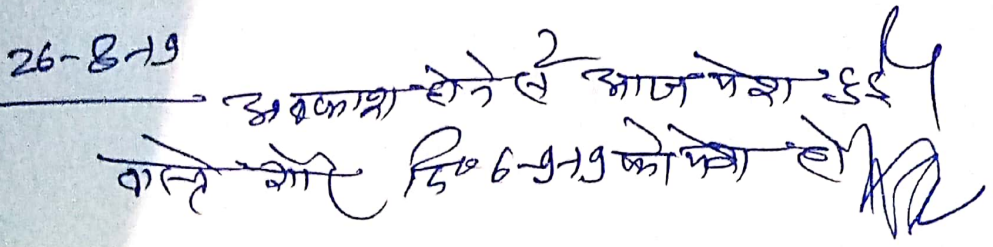 26-8-19
अवकाश होने से आज पेश हुई।
वास्ते दि० 6-9-19 को पेश हो